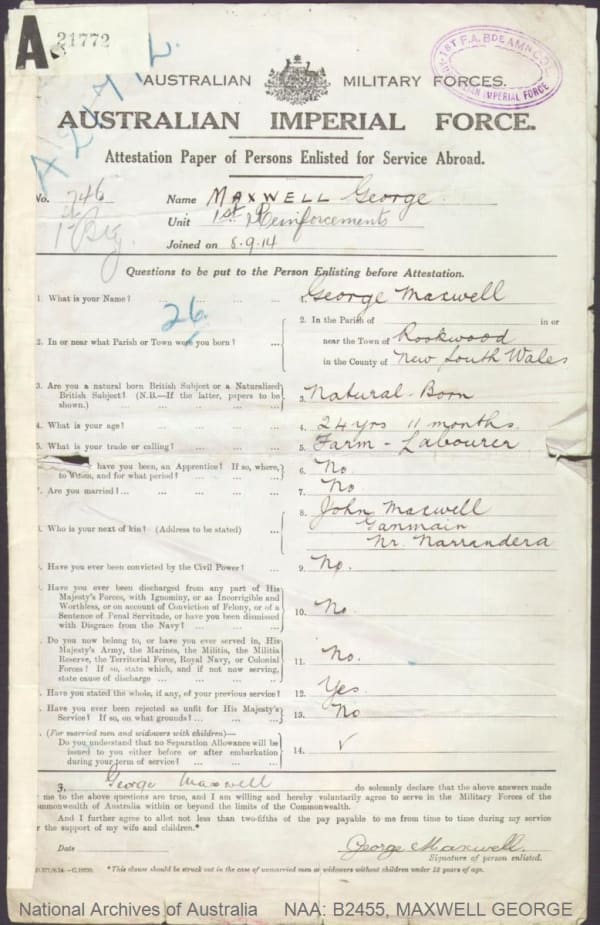 A
21772
1ST F.A. BDE AMN. COL.
AUSTRALIAN IMPERIAL FORCE
AUSTRALIAN MILITARY FORCES.
AUSTRALIAN IMPERIAL FORCE.
Attestation Paper of Persons Enlisted for Service Abroad.
No. 746 Name MAXWELL George
Unit 1st Reinforcements
Joined on 8.9.14
Questions to be put to the Person Enlisting before Attestation.
1. What is your Name? ... ... ... ... 1. George Maxwell
26
2. In or near what Parish or Town were you born? ... 2. In the Parish of in or
near the Town of Rookwood
in the County of New South Wales
3. Are you a natural born British Subject or a Naturalised
British Subject? (N.B.—If the latter, papers to be
shown.) ... ... ... ... ... 3. Natural-Born
4. What is your age? ... ... ... ... 4. 24 yrs 11 months
5. What is your trade or calling? ... ... ... 5. Farm-Labourer
have you been, an Apprentice? If so, where,
to whom, and for what period? ... ... ... 6. No
7. Are you married? ... ... ... ... ... 7. No
8. Who is your next of kin? (Address to be stated) ... 8. John Maxwell
Ganmain
Nr. Narrandera
. Have you ever been convicted by the Civil Power? ... 9. No.
. Have you ever been discharged from any part of His
Majesty's Forces, with Ignominy, or as Incorrigible and
Worthless, or on account of Conviction of Felony, or of a
Sentence of Penal Servitude, or have you been dismissed
with Disgrace from the Navy? ... ... ... 10. No.
Do you now belong to, or have you ever served in, His
Majesty's Army, the Marines, the Militia, the Militia
Reserve, the Territorial Force, Royal Navy, or Colonial
Forces? If so, state which, and if not now serving,
state cause of discharge ... ... ... ... 11. No.
. Have you stated the whole, if any, of your previous service? 12. Yes.
. Have you ever been rejected as unfit for His Majesty's
Service? If so, on what grounds? ... ... ... 13. No
. (For married men and widowers with children)—
Do you understand that no Separation Allowance will be
issued to you either before or after embarkation
during your term of service? ... ... ... 14. ✓
3, George Maxwell do solemnly declare that the above answers made
me to the above questions are true, and I am willing and hereby voluntarily agree to serve in the Military Forces of the
mmonwealth of Australia within or beyond the limits of the Commonwealth.
And I further agree to allot not less than two-fifths of the pay payable to me from time to time during my service
r the support of my wife and children.*
Date George Maxwell.
Signature of person enlisted.
*This clause should be struck out in the case of unmarried men or widowers without children under 18 years of age.
National Archives of Australia NAA: B2455, MAXWELL GEORGE